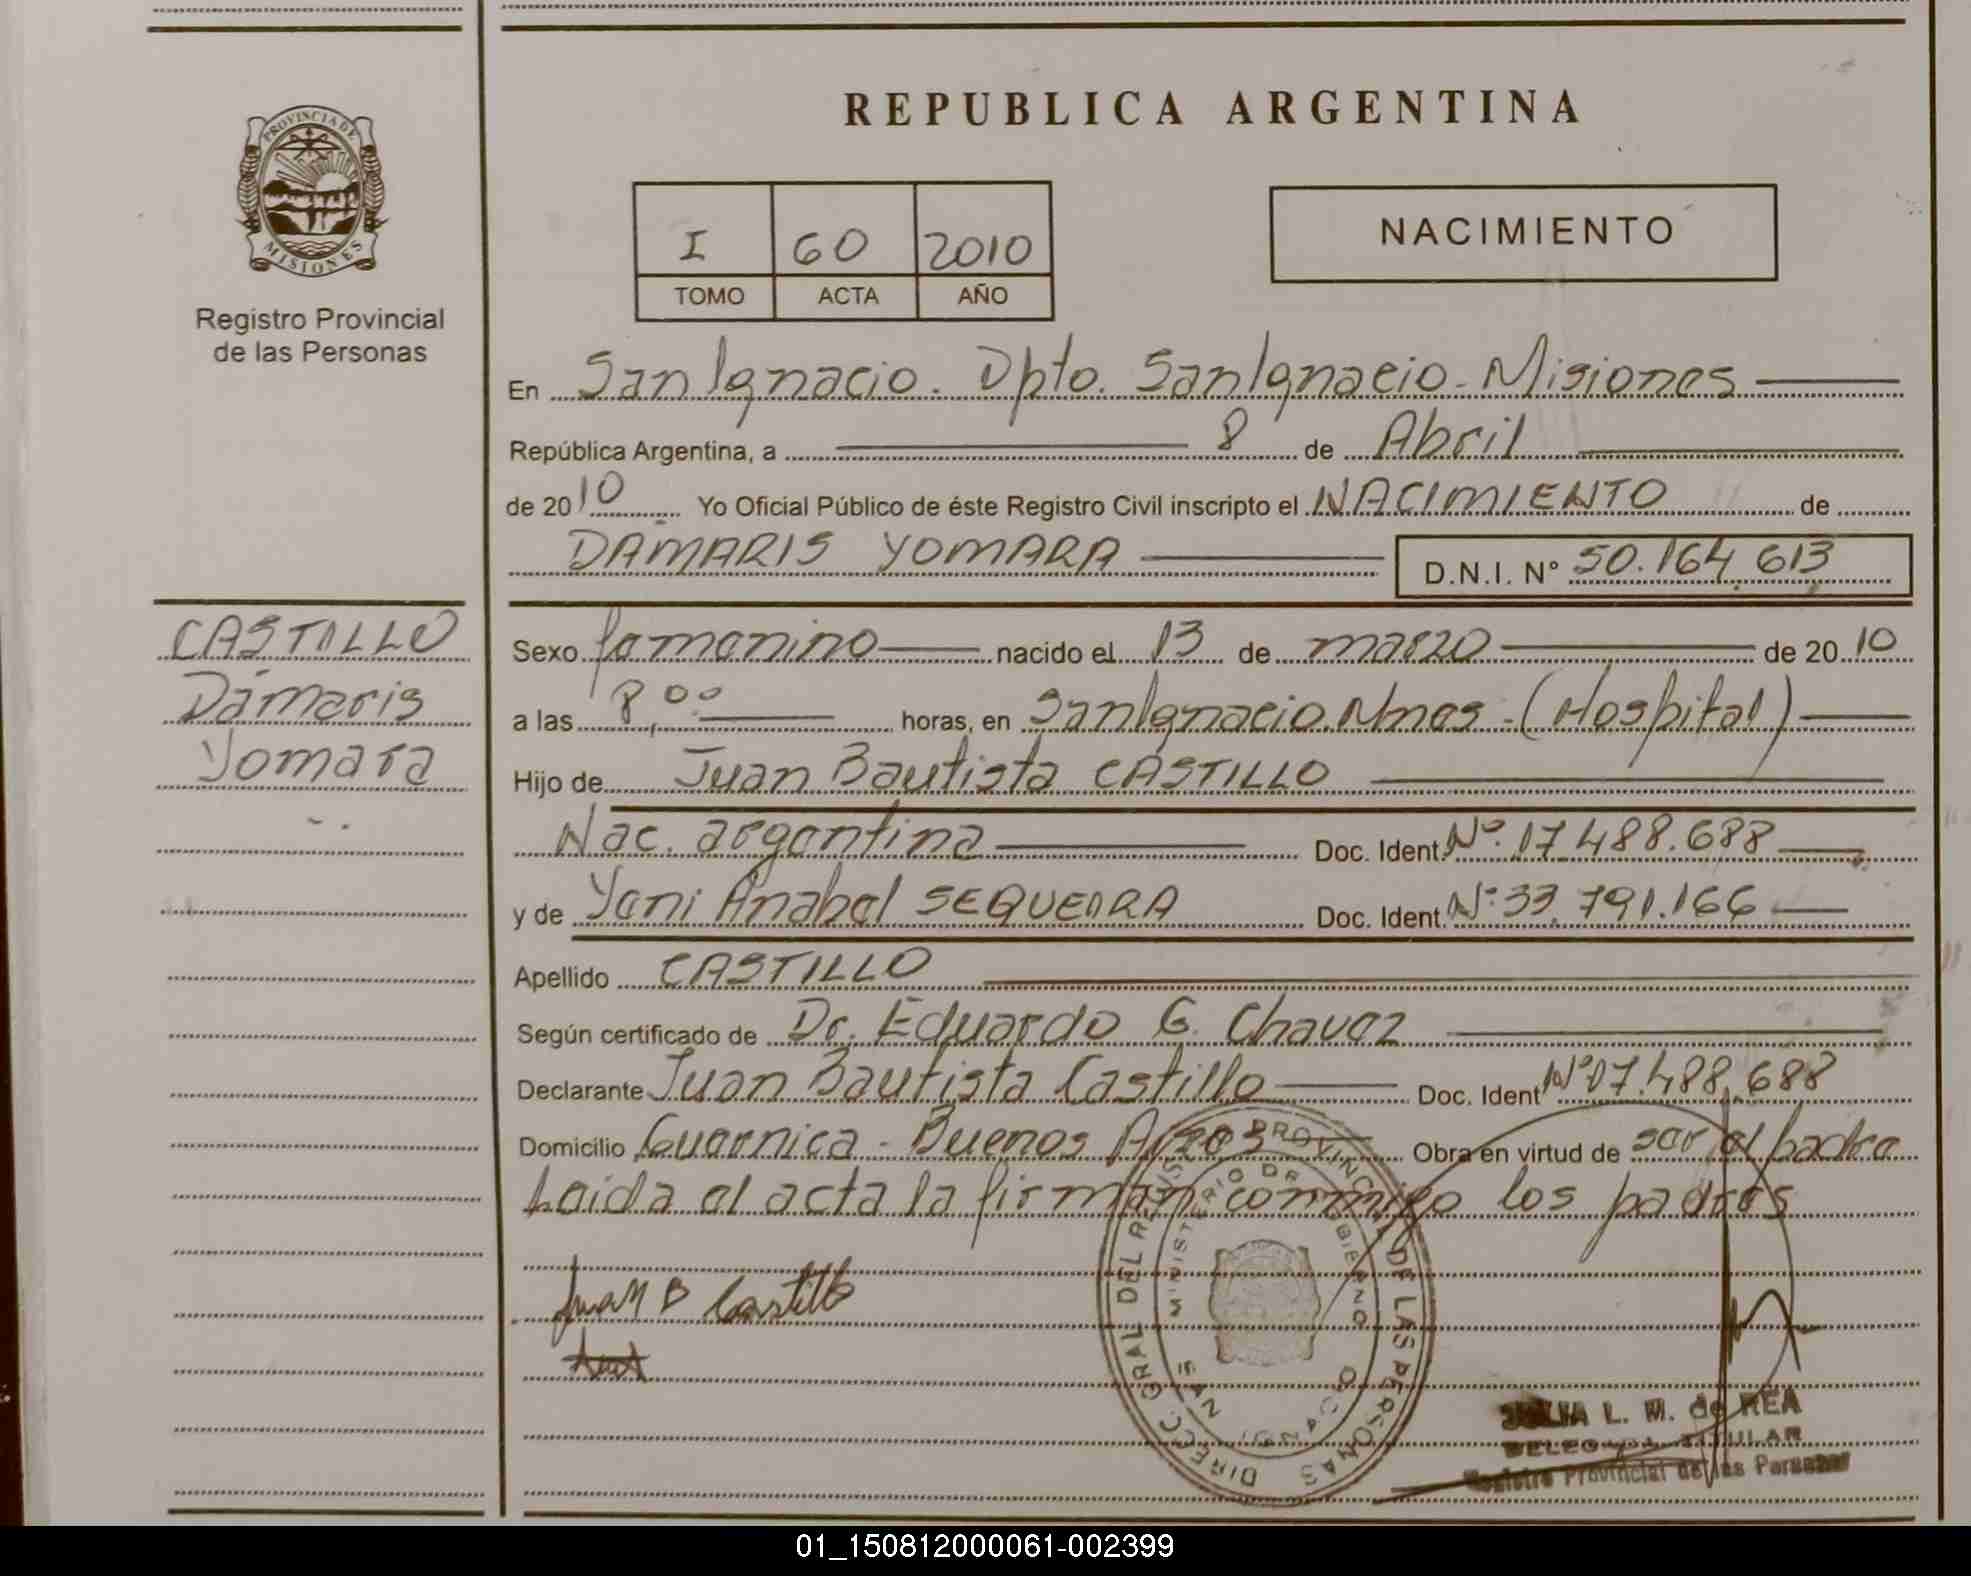 REPUBLICA ARGENTINA
PROVINCIA DE
MISIONES
Registro Provincial
de las Personas
I 60 2010
TOMO ACTA AÑO
NACIMIENTO
En San Ignacio. Dpto. San Ignacio - Misiones
República Argentina, a 8 de Abril
de 2010 Yo Oficial Público de éste Registro Civil inscripto el NACIMIENTO de
DAMARIS YOMARA D.N.I. N° 50.164.613
CASTILLO
Dámaris
Yomara
Sexo femenino nacido el 13 de marzo de 2010
a las 8,00 horas, en San Ignacio. Mnes - (Hospital)
Hijo de Juan Bautista CASTILLO
Nac. argentina Doc. Ident. N° 17.488.688
y de Yeni Anabel SEQUEIRA Doc. Ident. N° 33.791.166
Apellido CASTILLO
Según certificado de Dr. Eduardo G. Chavez
Declarante Juan Bautista Castillo Doc. Ident N° 17.488.688
Domicilio Guernica - Buenos Aires Obra en virtud de ser el padre
Leida el acta la firman conmigo los padres
Juan B Castillo
DIREC. GRAL DEL REGISTRO PROVINCIAL DE LAS PERSONAS
MINISTERIO DE GOBIERNO
JULIA L. M. de REA
DELEGADA TITULAR
Registro Provincial de las Personas
01_150812000061-002399